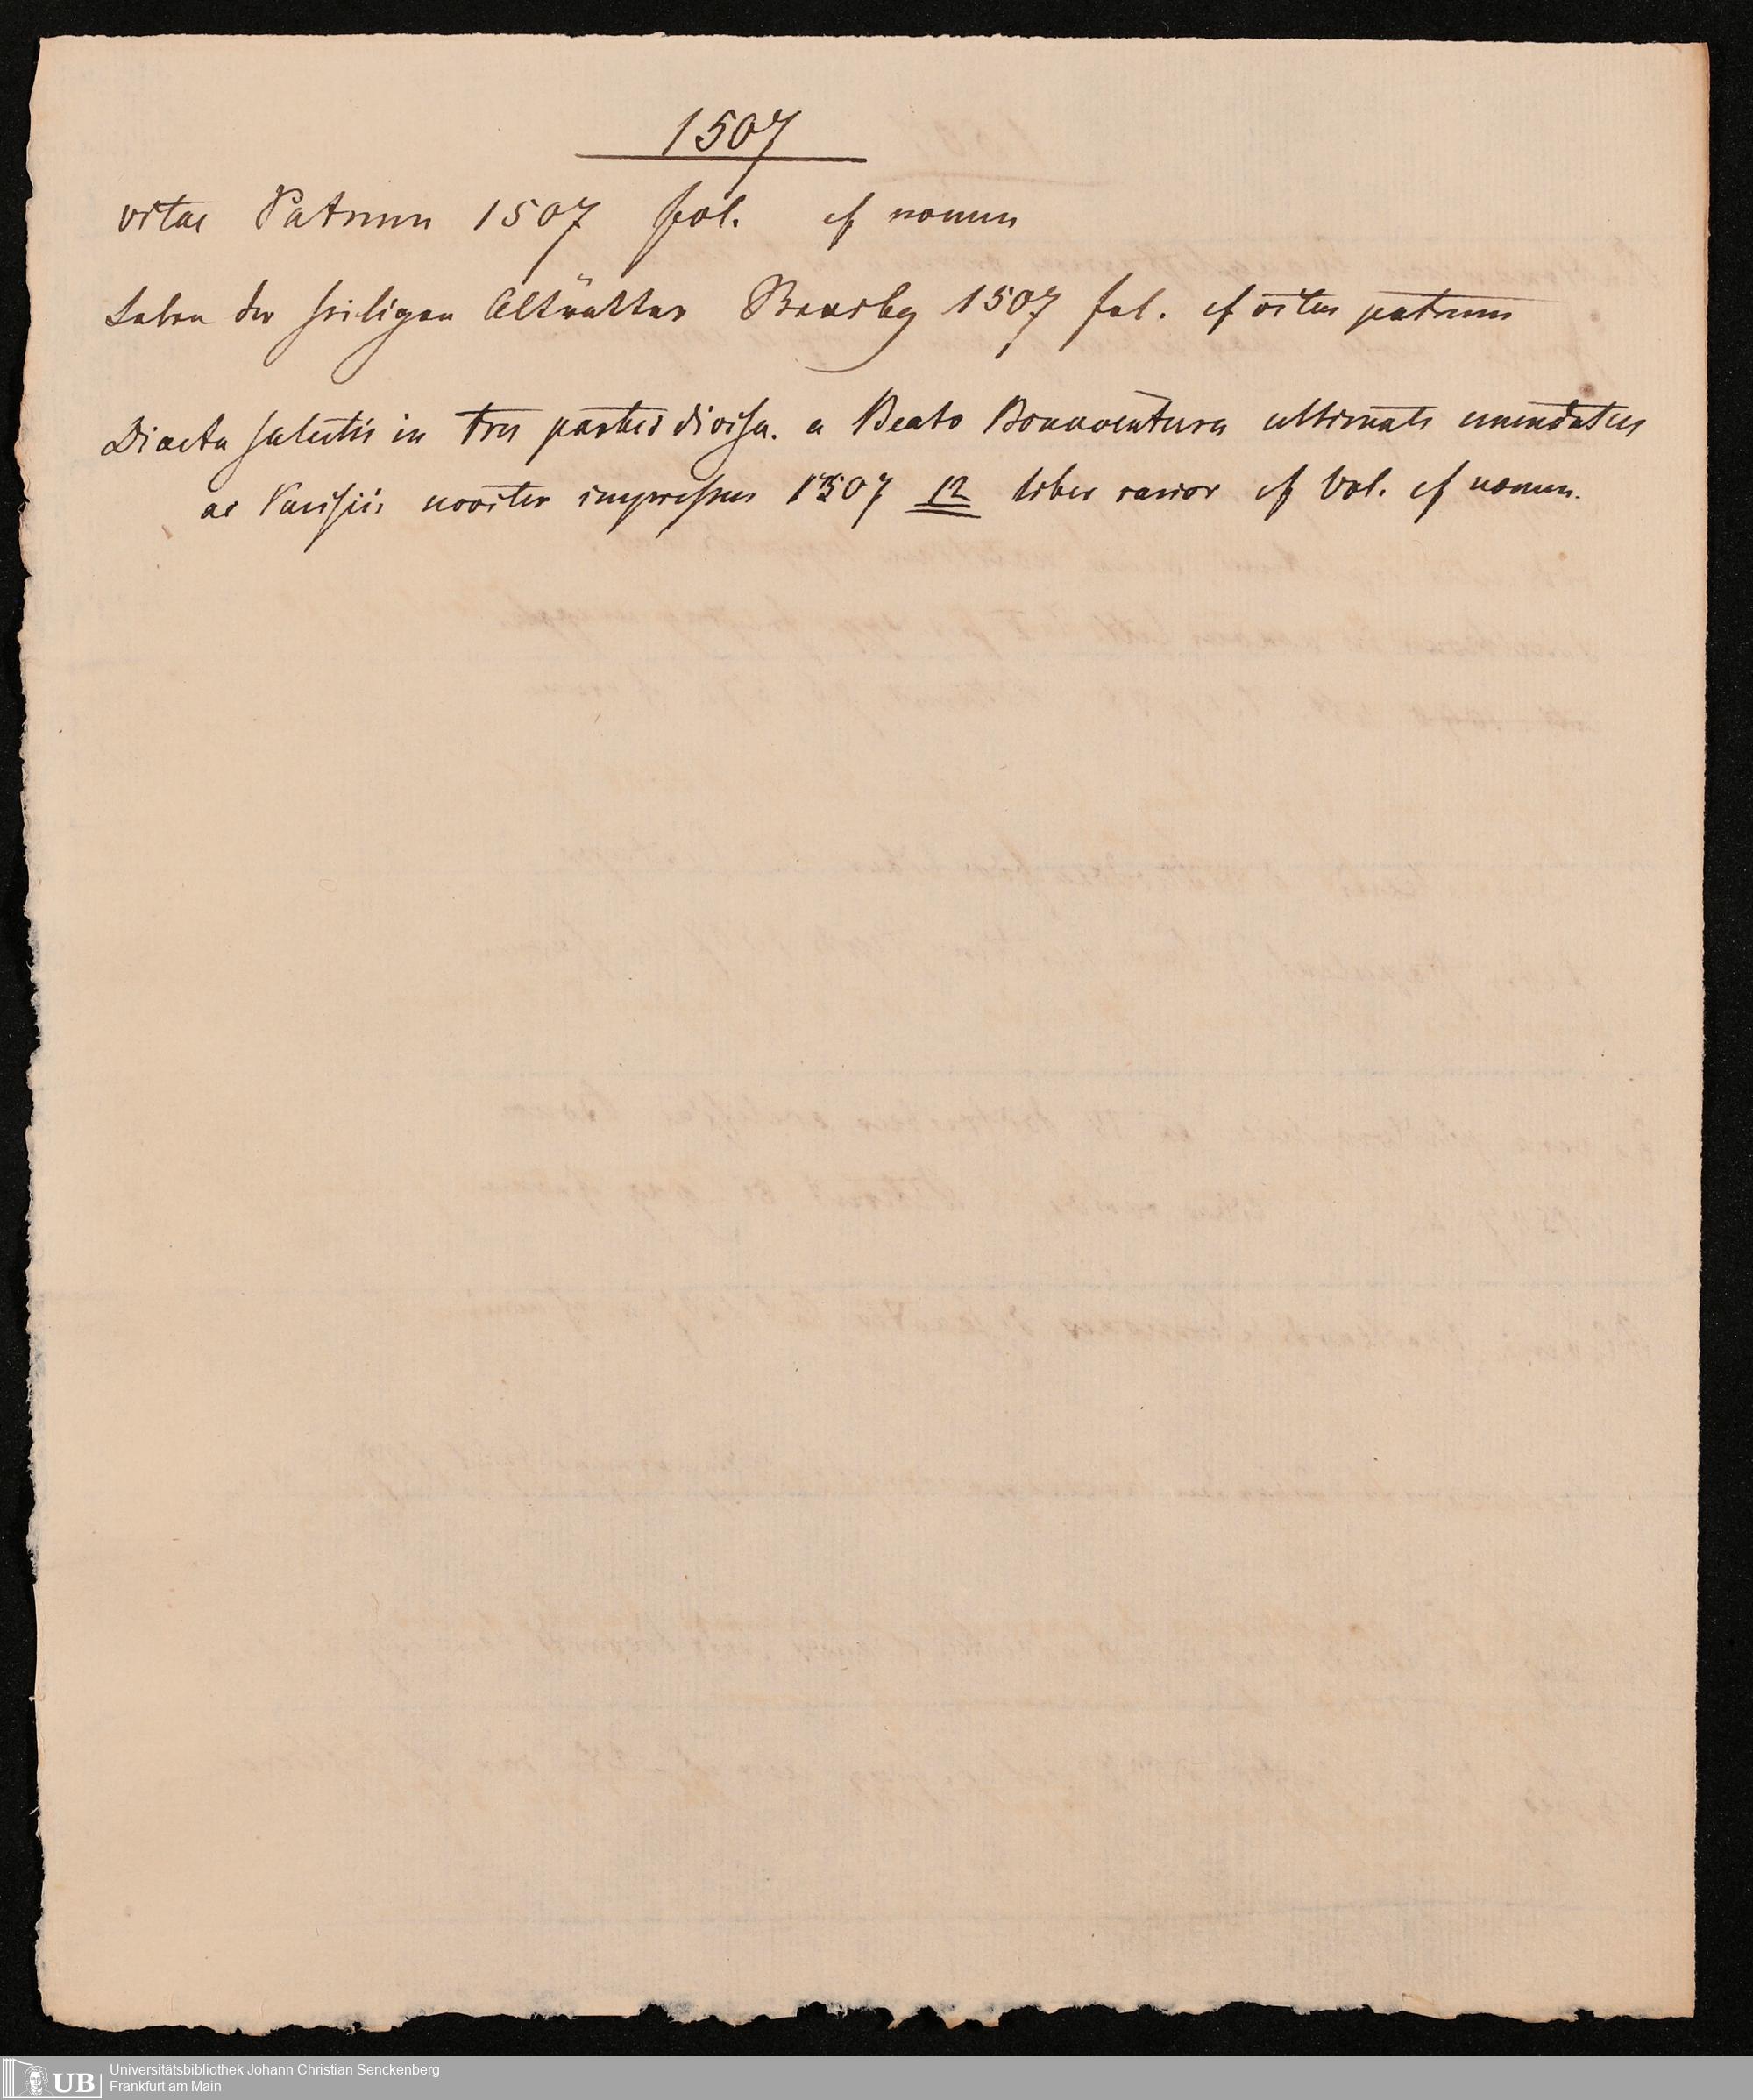 1507
vitae Patrum 1507 fol. cf nomen
Leben der heiligen Altvätter 1507 fol. cf vitas patrum
Diaeta salutis in tres partes divisa. a Beato Bonaventura ultimate emendatus
ac Parisiis noviter impressus 1507 12 liber rarior cf Vol. cf nomen.
UB Universitätsbibliothek Johann Christian Senckenberg
Frankfurt am Main